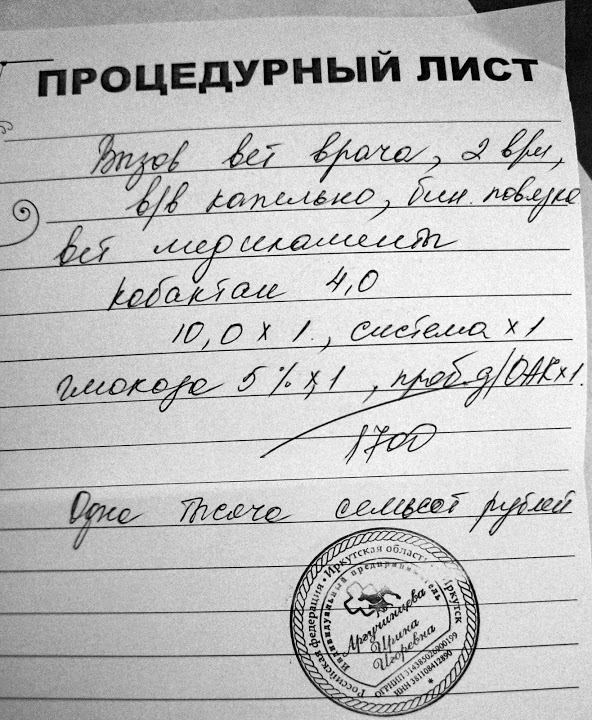 ПРОЦЕДУРНЫЙ ЛИСТ
Вызов вет врача, 2 в/м,
в/в капельно, бин. повязка
вет медикаменты
кобактан 4,0
10,0 х 1., система х 1
глюкоза 5% х 1, проб.д/ОАК х 1.
1700
Одна тысяча семьсот рублей
Российская федерация • Иркутская область Иркутск
Индивидуальный предприниматель
Аргучинцева
Ирина
Игоревна
ОГРНИП 314385026800159
ИНН 381108412890